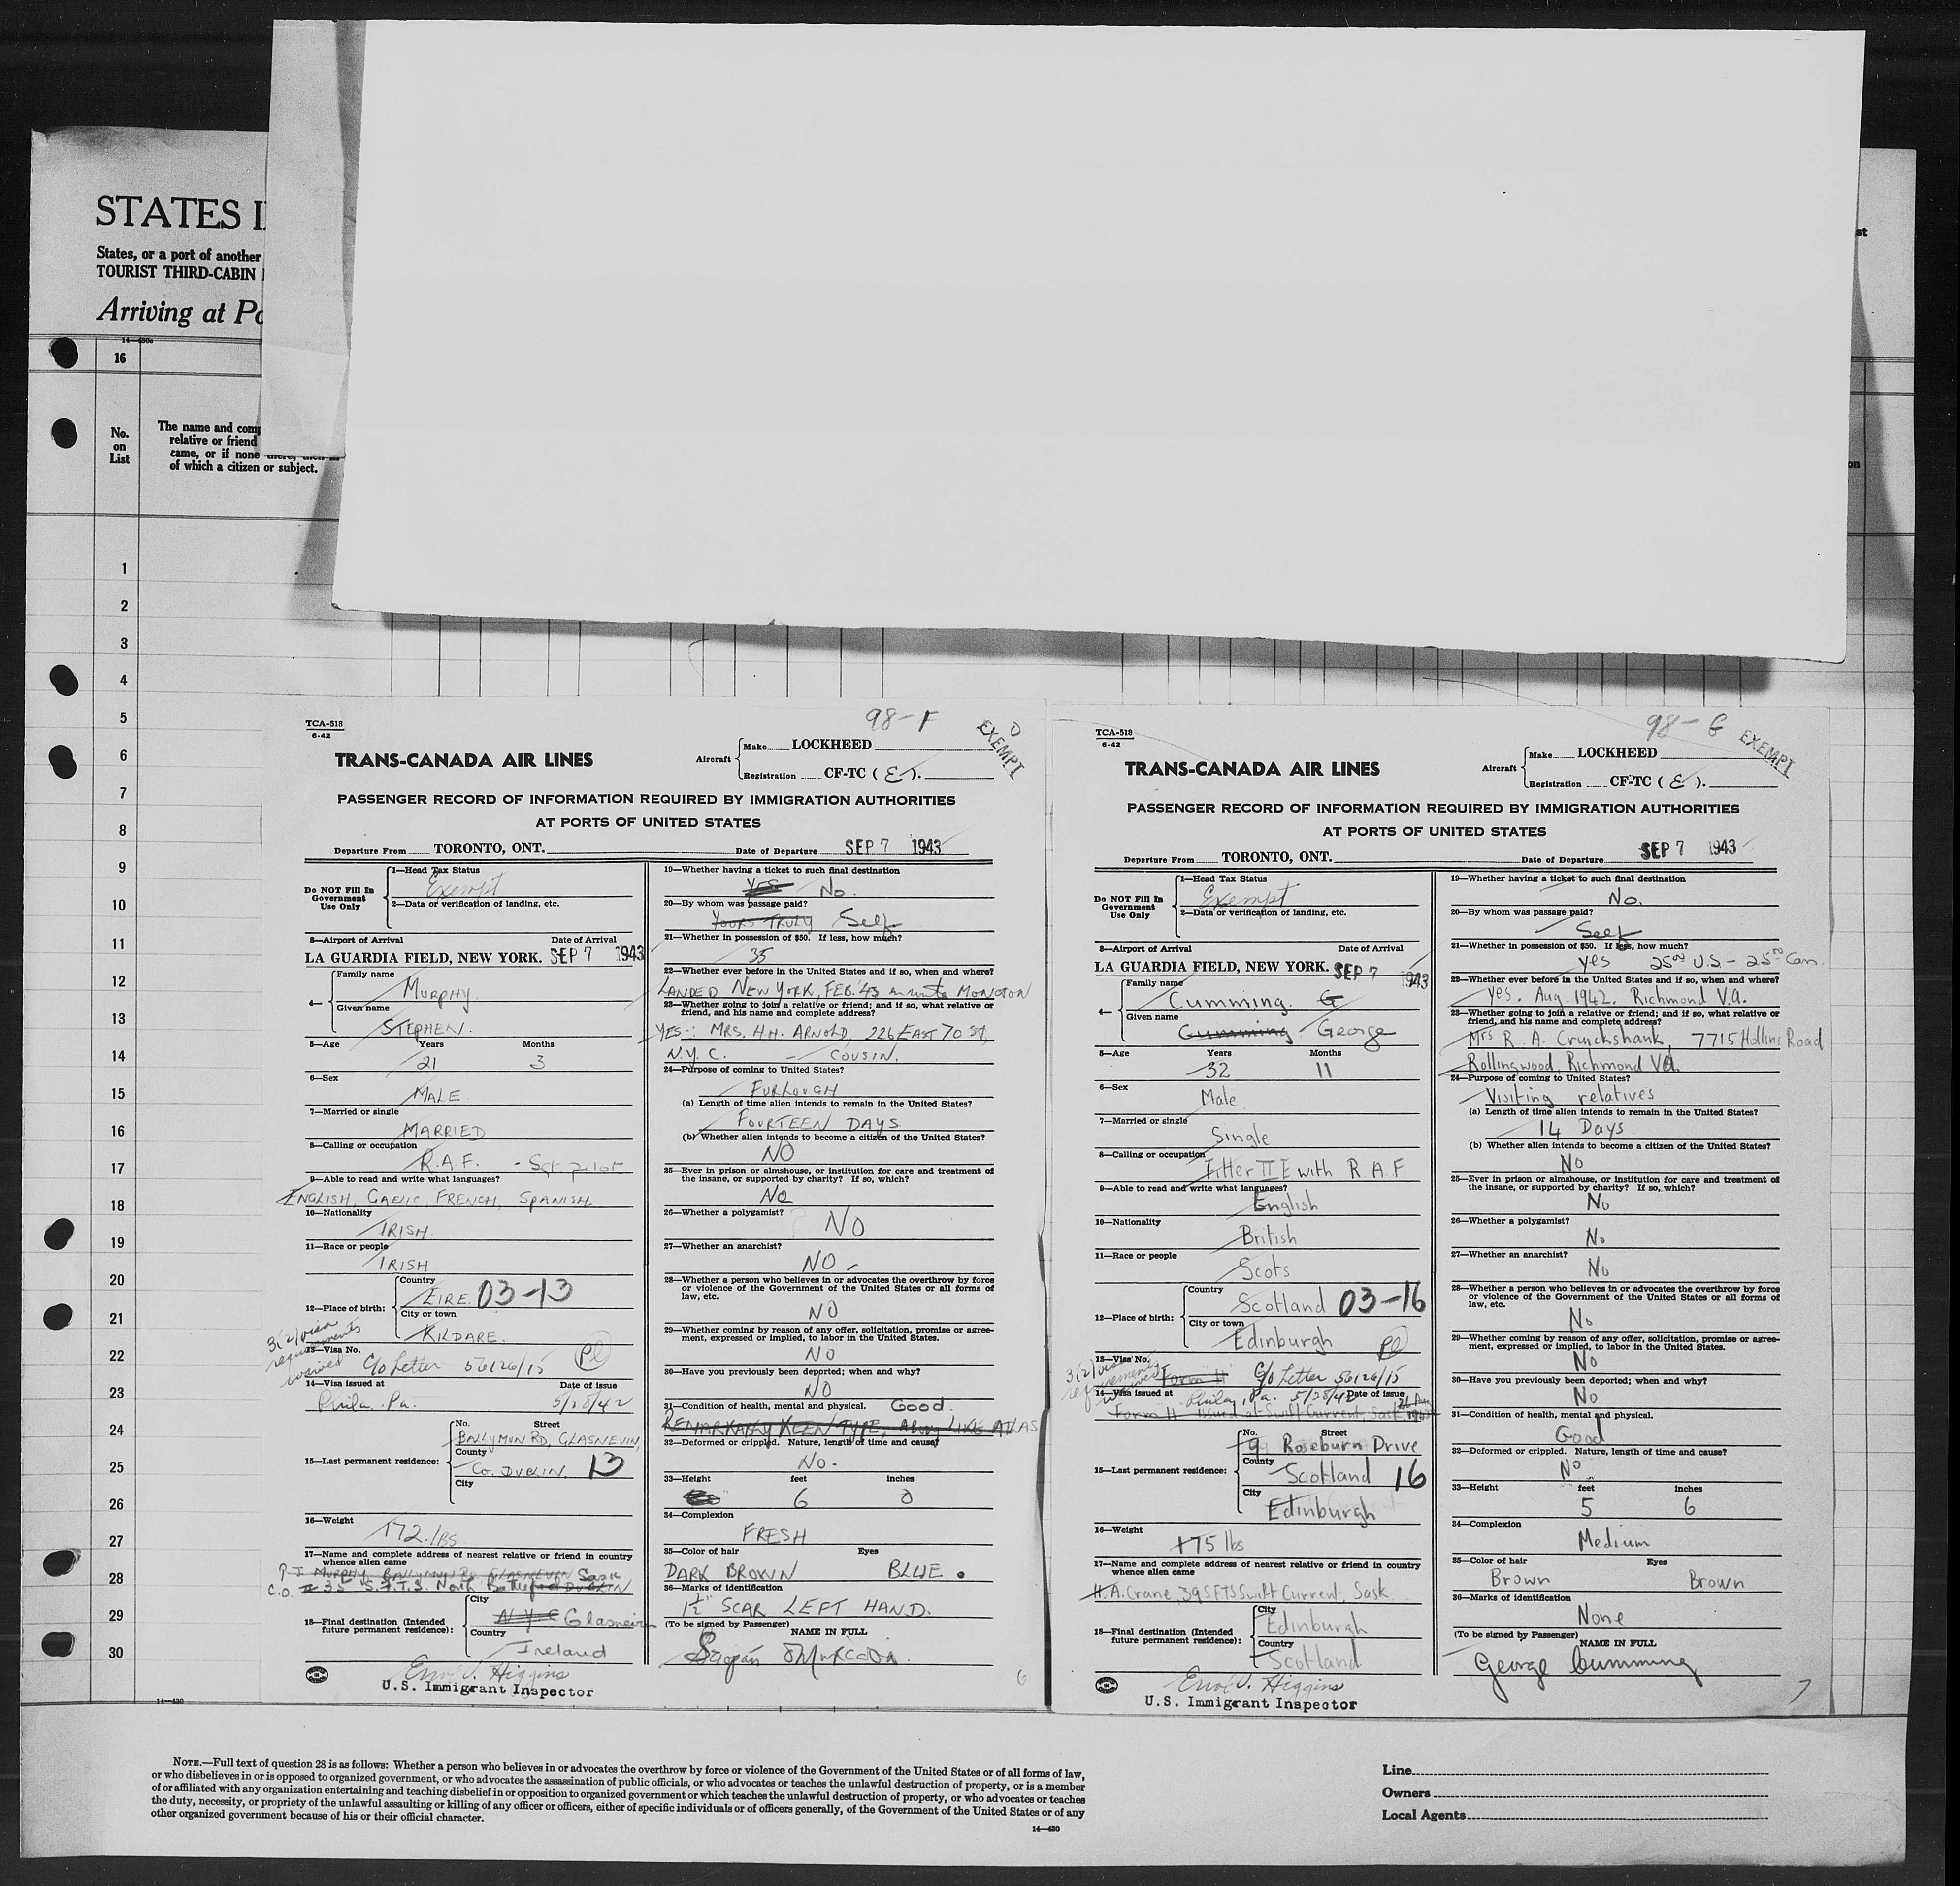 STATES I
States, or a port of another
TOURIST THIRD-CABIN
Arriving at Po
16
No.
on
List
The name and comp
relative or friend
came, or if none there, then
of which a citizen or subject.
st
on
1
2
3
4
5
6
7
8
9
10
11
12
13
14
15
16
17
18
19
20
21
22
23
24
25
26
27
28
29
30
98-F
EXEMPT
TCA-518
6-42
TRANS-CANADA AIR LINES
Aircraft
Make LOCKHEED
Registration CF-TC ( E ).
PASSENGER RECORD OF INFORMATION REQUIRED BY IMMIGRATION AUTHORITIES
AT PORTS OF UNITED STATES
Departure From TORONTO, ONT. Date of Departure SEP 7 1943
Do NOT Fill In
Government
Use Only
1—Head Tax Status
Exempt
2—Data or verification of landing, etc.
3—Airport of Arrival Date of Arrival
LA GUARDIA FIELD, NEW YORK. SEP 7 1943
4—
Family name
MURPHY.
Given name
STEPHEN.
5—Age Years Months
21 3
6—Sex
MALE
7—Married or single
MARRIED
8—Calling or occupation
R.A.F. - Sgt. pilot
9—Able to read and write what languages?
ENGLISH, GAELIC, FRENCH, SPANISH
10—Nationality
IRISH.
11—Race or people
IRISH
12—Place of birth:
Country
EIRE. 03-13
City or town
KILDARE.
3(2) visa
requirements
waived
13—Visa No.
C/o Letter 56126/15 Pl
14—Visa issued at Date of issue
Phila. Pa. 5/28/42
15—Last permanent residence:
No. Street
BALLYMUN RD, GLASNEVIN,
County
Co. DUBLIN. 13
City
16—Weight
172. lbs
17—Name and complete address of nearest relative or friend in country
whence alien came
P.J. MURPHY, BALLYMUN RD, GLASNEVIN Sask
C.O. # 35 S.F.T.S. North Battleford DUBLIN
18—Final destination (Intended
future permanent residence):
City
N.Y.C Glasnevin
Country
Ireland
Errol J. Higgins
U.S. Immigrant Inspector
19—Whether having a ticket to such final destination
YES No.
20—By whom was passage paid?
YOURS TRULY Self
21—Whether in possession of $50. If less, how much?
35
22—Whether ever before in the United States and if so, when and where?
LANDED NEW YORK, FEB. '43 en route MONCTON
23—Whether going to join a relative or friend; and if so, what relative or
friend, and his name and complete address?
YES-: MRS. H.H. ARNOLD, 226 EAST 70 St,
N.Y.C. - COUSIN.
24—Purpose of coming to United States?
FURLOUGH
(a) Length of time alien intends to remain in the United States?
FOURTEEN DAYS
(b) Whether alien intends to become a citizen of the United States?
NO
25—Ever in prison or almshouse, or institution for care and treatment of
the insane, or supported by charity? If so, which?
NO
26—Whether a polygamist?
NO
27—Whether an anarchist?
NO -
28—Whether a person who believes in or advocates the overthrow by force
or violence of the Government of the United States or all forms of
law, etc.
NO
29—Whether coming by reason of any offer, solicitation, promise or agree-
ment, expressed or implied, to labor in the United States.
NO
30—Have you previously been deported; when and why?
NO
31—Condition of health, mental and physical. Good.
REMARKABLY KEEN TYPE, LIKE ATLAS
32—Deformed or crippled. Nature, length of time and cause?
NO.
33—Height feet inches
6 0
34—Complexion
FRESH
35—Color of hair Eyes
DARK BROWN BLUE.
36—Marks of identification
1½" SCAR LEFT HAND.
(To be signed by Passenger) NAME IN FULL
6
98-G
EXEMPT
TCA-518
6-42
TRANS-CANADA AIR LINES
Aircraft
Make LOCKHEED
Registration CF-TC ( E ).
PASSENGER RECORD OF INFORMATION REQUIRED BY IMMIGRATION AUTHORITIES
AT PORTS OF UNITED STATES
Departure From TORONTO, ONT. Date of Departure SEP 7 1943
Do NOT Fill In
Government
Use Only
1—Head Tax Status
Exempt
2—Data or verification of landing, etc.
3—Airport of Arrival Date of Arrival
LA GUARDIA FIELD, NEW YORK. SEP 7 1943
4—
Family name
Cumming. G
Given name
Cumming George
5—Age Years Months
32 11
6—Sex
Male
7—Married or single
Single
8—Calling or occupation
Fitter II E with R A F
9—Able to read and write what languages?
English
10—Nationality
British
11—Race or people
Scots
12—Place of birth:
Country
Scotland 03-16
City or town
Edinburgh Pl
3(2) visa
requirements
waived
13—Visa No.
Form "H" C/o Letter 56126/15
14—Visa issued at Phila, Pa. 5/28/42 Date of issue
Form H issued at Swift Current, Sask.
15—Last permanent residence:
No. Street
9 Roseburn Drive
County
Scotland 16
City
Edinburgh
16—Weight
175 lbs
17—Name and complete address of nearest relative or friend in country
whence alien came
H.A. Crane, 39 SFTS Swift Current, Sask
18—Final destination (Intended
future permanent residence):
City
Edinburgh
Country
Scotland
Errol J. Higgins
U.S. Immigrant Inspector
19—Whether having a ticket to such final destination
No.
20—By whom was passage paid?
Self
21—Whether in possession of $50. If less, how much?
yes 25.00 U.S - 25.00 Can.
22—Whether ever before in the United States and if so, when and where?
Yes. Aug. 1942. Richmond V.a.
23—Whether going to join a relative or friend; and if so, what relative or
friend, and his name and complete address?
Mrs R. A. Cruickshank, 7715 Hollins Road
Rollingwood, Richmond Va.
24—Purpose of coming to United States?
Visiting relatives
(a) Length of time alien intends to remain in the United States?
14 Days
(b) Whether alien intends to become a citizen of the United States?
No
25—Ever in prison or almshouse, or institution for care and treatment of
the insane, or supported by charity? If so, which?
No
26—Whether a polygamist?
No
27—Whether an anarchist?
No
28—Whether a person who believes in or advocates the overthrow by force
or violence of the Government of the United States or all forms of
law, etc.
No
29—Whether coming by reason of any offer, solicitation, promise or agree-
ment, expressed or implied, to labor in the United States.
No
30—Have you previously been deported; when and why?
No
31—Condition of health, mental and physical.
Good
32—Deformed or crippled. Nature, length of time and cause?
No
33—Height feet inches
5 6
34—Complexion
Medium
35—Color of hair Eyes
Brown Brown
36—Marks of identification
None
(To be signed by Passenger) NAME IN FULL
George Cumming
7
14—430
NOTE.—Full text of question 28 is as follows: Whether a person who believes in or advocates the overthrow by force or violence of the Government of the United States or of all forms of law,
or who disbelieves in or is opposed to organized government, or who advocates the assassination of public officials, or who advocates or teaches the unlawful destruction of property, or is a member
of or affiliated with any organization entertaining and teaching disbelief in or opposition to organized government or which teaches the unlawful destruction of property, or who advocates or teaches
the duty, necessity, or propriety of the unlawful assaulting or killing of any officer or officers, either of specific individuals or of officers generally, of the Government of the United States or of any
other organized government because of his or their official character.
14—430
Line
Owners
Local Agents